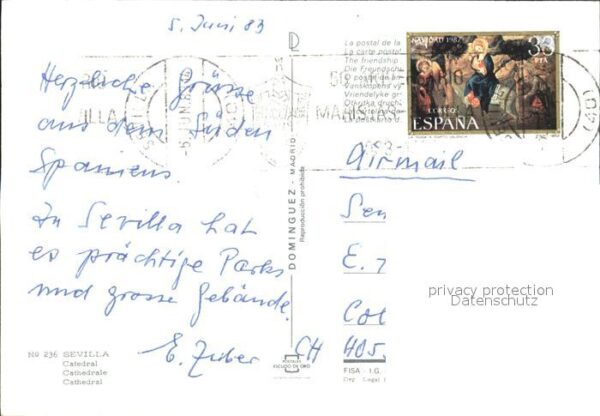 5. Juni 83
Herzliche Grüsse
aus dem Süden
Spaniens.
In Sevilla hat
es prächtige Parks
und grosse Gebäude.
E. Zuber
Nº 236 SEVILLA
Catedral
Cathedrale
Cathedral
DOMINGUEZ - MADRID
Reproducción prohibida
POSTALES
ESCUDO DE ORO
La postal de la
La carte postal
The friendship
Die Freundscha
NAVIDAD 1982
33
PTA
CORREOS
ESPAÑA
-6.JUN.83
Airmail
Sen
E. 7
Col
CH 405
privacy protection
Datenschutz
FISA - I.G.
Dep. Legal